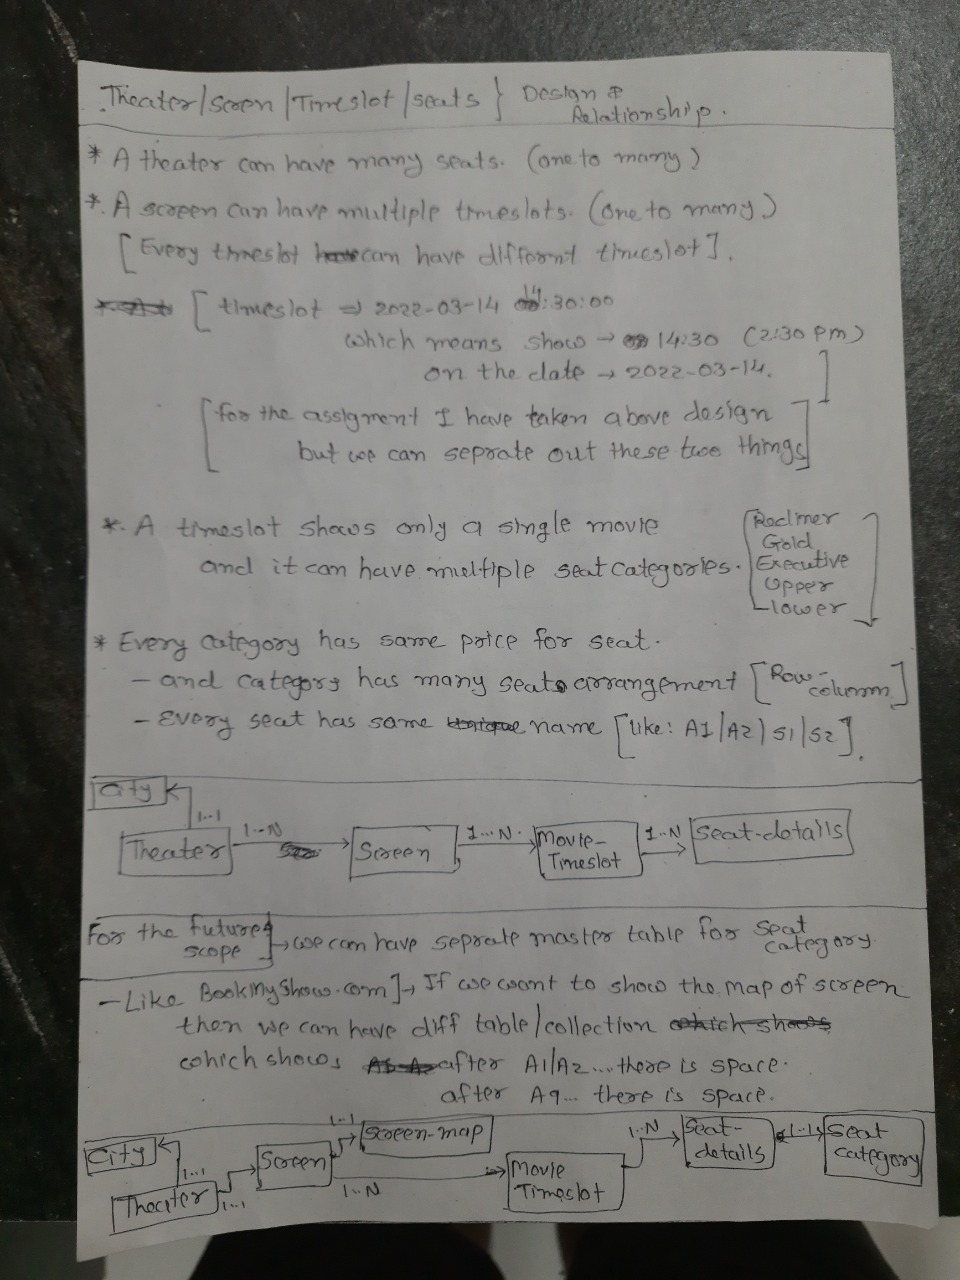 Theater/Screen/Timeslot/seats } Design &
Relationship.
* A theater can have many seats. (one to many)
* A screen can have multiple timeslots. (One to many)
[Every timeslot can have different timeslot].
[ timeslot ⇒ 2022-03-14 14:30:00
which means show → 14:30 (2:30 pm)
on the date → 2022-03-14. ]
[for the assigment I have taken above design
but we can seprate out these two things]
* A timeslot shows only a single movie
and it can have multiple seat categories.
[Recliner
Gold
Executive
Upper
Lower]
* Every category has same price for seat.
- and category has many seats arrangement [Row-
column]
- Every seat has same name [like: A1/A2/S1/S2].
City
1..1
Theater 1..N Screen 1...N. Movie-
Timeslot 1..N Seat-details
For the future
scope → we can have seprate master table for seat
category
- Like BookMyShow.com] → If we want to show the map of screen
then we can have diff table/collection
which shows after A1/A2...there is space.
after A9... there is space.
City 1..1 Theater 1..1 Screen 1..1 Screen-map
1..N Movie
Timeslot 1..N Seat-
details 1..1 Seat
category